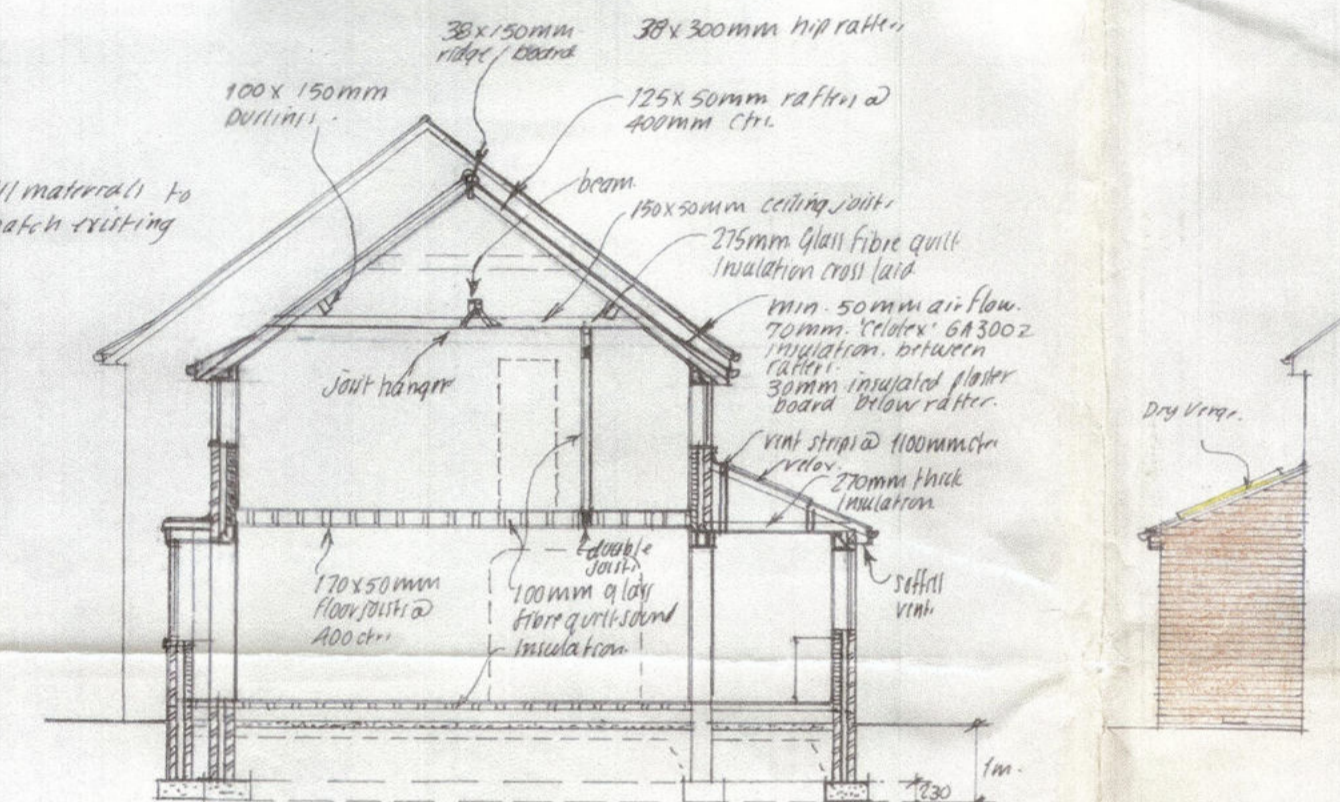 38x150mm
ridge board
38x300mm hip rafters
100x150mm
Purlins.
125x50mm rafters @
400mm ctrs.
materials to
existing
beam.
150x50mm ceiling joists
275mm Glass fibre quilt
Insulation cross laid
min. 50mm air flow.
70mm. 'Celotex' GA3002
insulation. between
rafters.
30mm insulated plaster
board below rafter.
joist hanger
Dry Verge.
vent strips @ 1100mm ctrs
velox.
270mm thick
Insulation
double
joists
170x50mm
floor joists @
400 ctrs.
100mm glass
fibre quilt sound
Insulation.
soffit
vent.
1m.
230